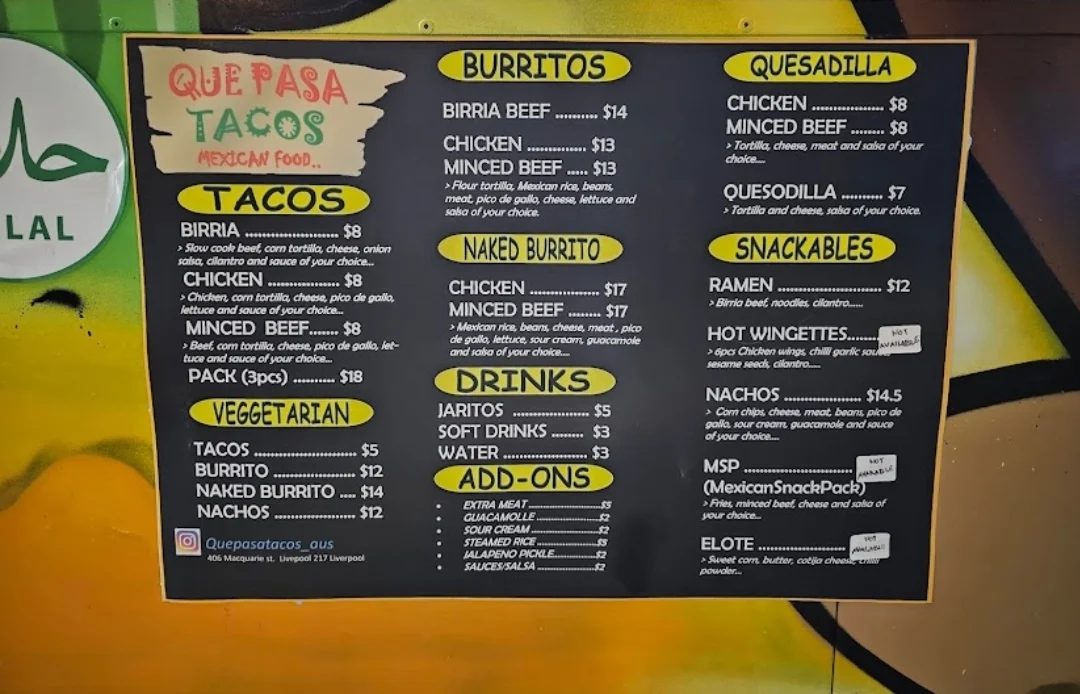 حلال
LAL
QUE PASA
TACOS
MEXICAN FOOD..
TACOS
BIRRIA ...................... $8
> Slow cook beef, corn tortilla, cheese, onion
salsa, cilantro and sauce of your choice...
CHICKEN ................. $8
> Chicken, corn tortilla, cheese, pico de gallo,
lettuce and sauce of your choice...
MINCED BEEF....... $8
> Beef, corn tortilla, cheese, pico de gallo, let-
tuce and sauce of your choice...
PACK (3pcs) .......... $18
VEGGETARIAN
TACOS ......................... $5
BURRITO .................... $12
NAKED BURRITO .... $14
NACHOS ..................... $12
Quepasatacos_aus
406 Macquarie st. Livepool 217 Liverpool
BURRITOS
BIRRIA BEEF .......... $14
CHICKEN .............. $13
MINCED BEEF ..... $13
> Flour tortilla, Mexican rice, beans,
meat, pico de gallo, cheese, lettuce and
salsa of your choice.
NAKED BURRITO
CHICKEN ................. $17
MINCED BEEF ......... $17
> Mexican rice, beans, cheese, meat , pico
de gallo, lettuce, sour cream, guacamole
and salsa of your choice....
DRINKS
JARITOS .................. $5
SOFT DRINKS ........ $3
WATER .................... $3
ADD-ONS
• EXTRA MEAT ......................$5
• GUACAMOLLE ..................$2
• SOUR CREAM ....................$2
• STEAMED RICE ..................$5
• JALAPENO PICKLE..............$2
• SAUCES/SALSA ..................$2
QUESADILLA
CHICKEN .................. $8
MINCED BEEF ........ $8
> Tortilla, cheese, meat and salsa of your
choice....
QUESODILLA .......... $7
> Tortilla and cheese, salsa of your choice.
SNACKABLES
RAMEN ............................... $12
> Birria beef, noodles, cilantro......
HOT WINGETTES.......
NOT
AVAILABLE
> 6pcs Chicken wings, chilli garlic
sesame seeds, cilantro.....
NACHOS .................. $14.5
> Corn chips, cheese, meat, beans, pico de
gallo, sour cream, guacamole and sauce
of your choice....
MSP .........................
NOT
AVAILABLE
(MexicanSnackPack)
> Fries, minced beef, cheese and salsa of
your choice...
ELOTE .....................
NOT
AVAILABLE
> Sweet corn, butter, cotija cheese, chilli
powder...